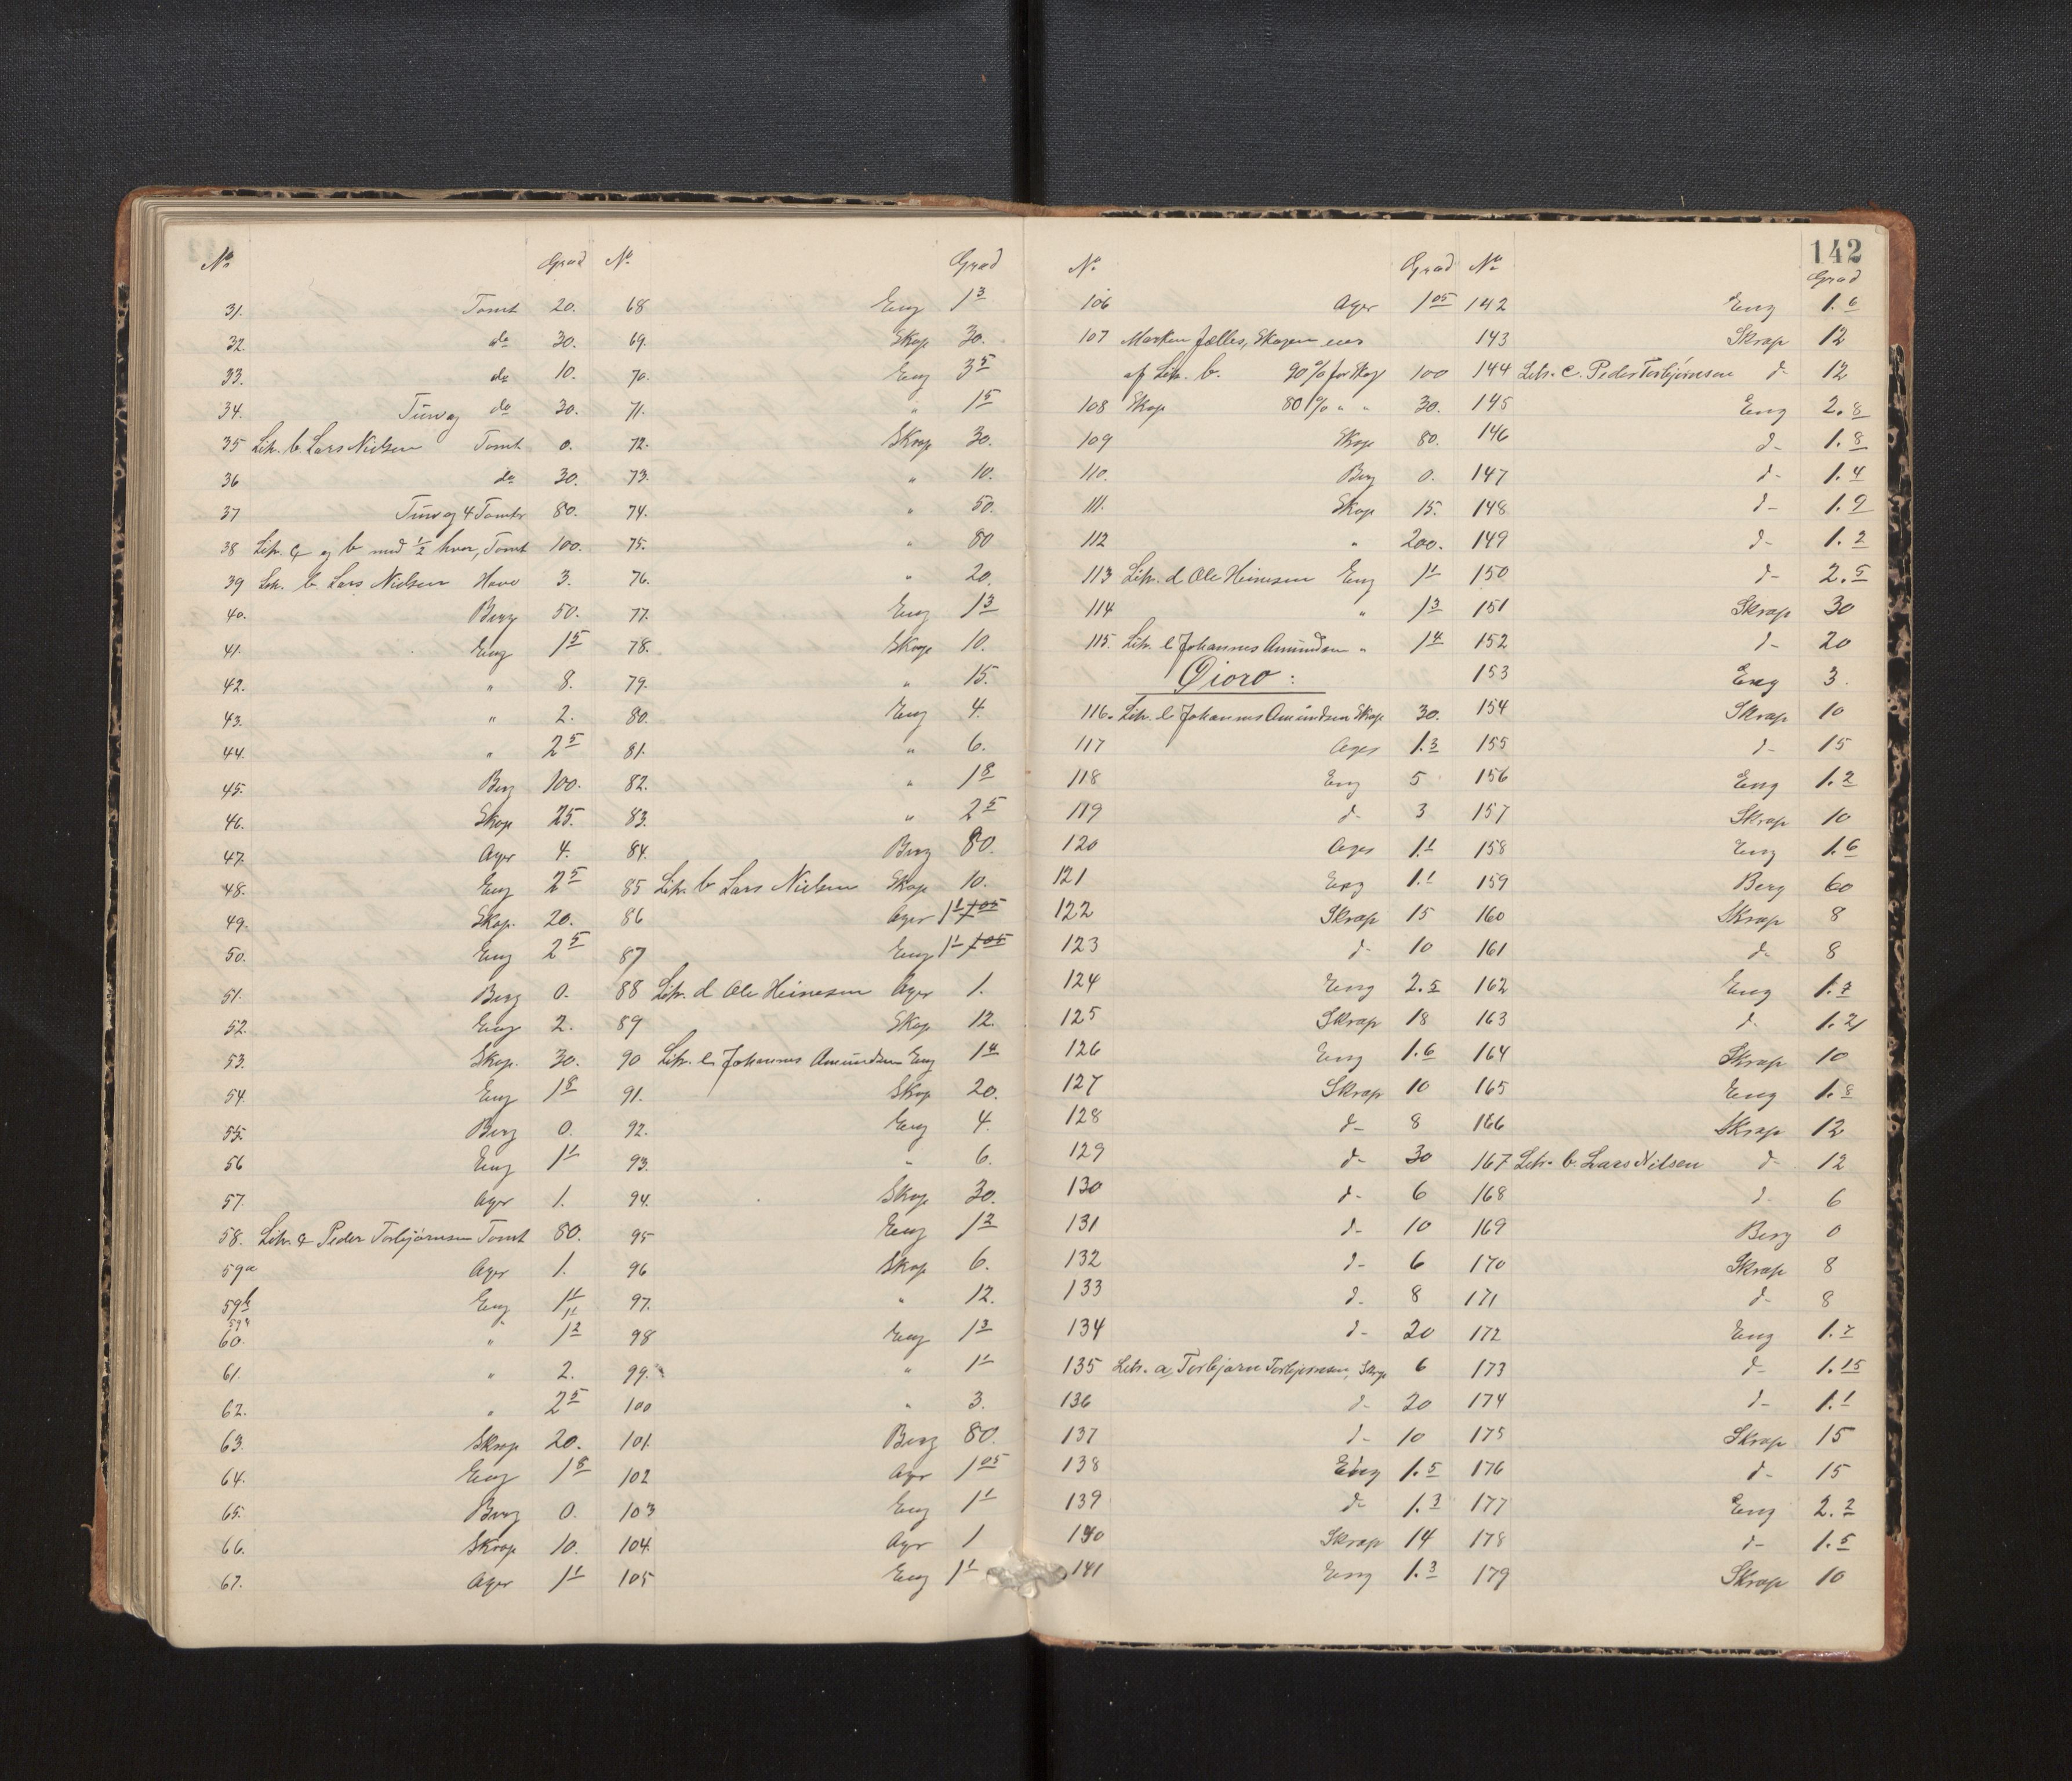 142
№ Grad
31. Tomt 20.
32. do 30.
33. do 10.
34. Tun og do 30.
35 Litr. b. Lars Nielsen Tomt 0.
36 do 30.
37 Tun og 4 Tomter 80.
38 Litr. c og b med 1/2 hver, Tomt 100.
39 Litr. b. Lars Nielsen Have 3.
40. Berg 50.
41. Eng 1 5
42. " 8.
43. " 2.
44. " 2 5
45. Berg 100.
46. Skog 25.
47. Ager 4.
48. Eng 2 5
49. Skog. 20.
50. Eng 2 5
51. Berg 0.
52. Eng 2.
53. Skog. 30.
54. Eng 1 8
55. Berg 0.
56 Eng 1 1
57. Ager 1.
58. Litr. c Peder Torbjørnsen Tomt 80.
59a Ager 1.
59b Eng 1 1
60. " 1 2
61. " 2.
62. " 2 5
63. Skrap 20.
64. Eng 1 8
65. Berg 0.
66. Skrap 10.
67. Ager 1 1
№ Grad
68 Eng 1 3
69. Skog 30.
70. Eng 3 5
71. " 1 5
72. Skrap 30.
73. " 10.
74. " 50.
75. " 80
76. " 20.
77. Eng 1 3
78. Skog 10.
79. " 15.
80. Eng 4.
81. " 6.
82. " 1 8
83. " 2 5
84. Berg 80.
85 Litr. b Lars Nielsen Skog 10.
86 Ager 1 1 1 05
87 Eng 1 1 1 05
88 Litr. d Ole Heinesen Ager 1.
89 Skog 12.
90 Litr. e Johannes Amundsen Eng 1 4
91. Skog 20.
92. Eng 4.
93. " 6.
94. Skog 30.
95 Eng 1 2
96 Skog 6.
97. " 12.
98 Eng 1 3
99. " 1 1
100 " 3.
101. Berg 80.
102 Ager 1 05
103 Eng 1 1
104. Ager 1
105 Eng 1 1
№ Grad
106 Ager 1 05
107 Marken fælles, Skogen eies
af Litr. b. 90% for Skog 100
108 Skog 80% " " 30.
109 Skog 80.
110. Berg 0.
111. Skog 15.
112 " 200.
113 Litr. d Ole Heinesen Eng 1 1
114 " 1 3
115. Litr. e Johannes Amundsen " 1 4
Øioro:
116. Litr. e Johannes Amundsen Skog 30.
117 Ager 1.3
118 Eng 5
119 d- 3
120 Ager 1.1
121 Eng 1.1
122 Skrap 15
123 d- 10
124 Eng 2.5
125 Skrap 18
126 Eng 1.6
127 Skrap 10
128 d- 8
129 d- 30
130 d- 6
131 d- 10
132 d- 6
133 d- 8
134 d- 20
135 Litr. a, Torbjørn Torbjørnsen, Skrap 6
136 d- 20
137 d- 10
138 Eng 1.5
139 d- 1.3
140 Skrap 14
141 Eng 1.3
№ Grad
142 Eng 1.6
143 Skrap 12
144 Litr. c. Peder Torbjørnsen d- 12
145 Eng 2.8
146 d- 1.8
147 d- 1.4
148 d- 1.9
149 d- 1.2
150 d- 2.5
151 Skrap 30
152 d- 20
153 Eng 3.
154 Skrap 10
155 d- 15
156 Eng 1.2
157 Skrap 10
158 Eng 1.6
159 Berg 60
160 Skrap 8
161 d- 8
162 Eng 1.7
163 d- 1.2
164 Skrap 10
165 Eng 1.8
166 Skrap 12
167 Litr. b. Lars Nilsen d- 12
168 d- 6
169 Berg 0
170 Skrap 8
171 d- 8
172 Eng 1.7
173 d- 1.15
174 d- 1.1
175 Skrap 15
176 d- 15
177 Eng 2.2
178 d- 1.5
179 Skrap 10